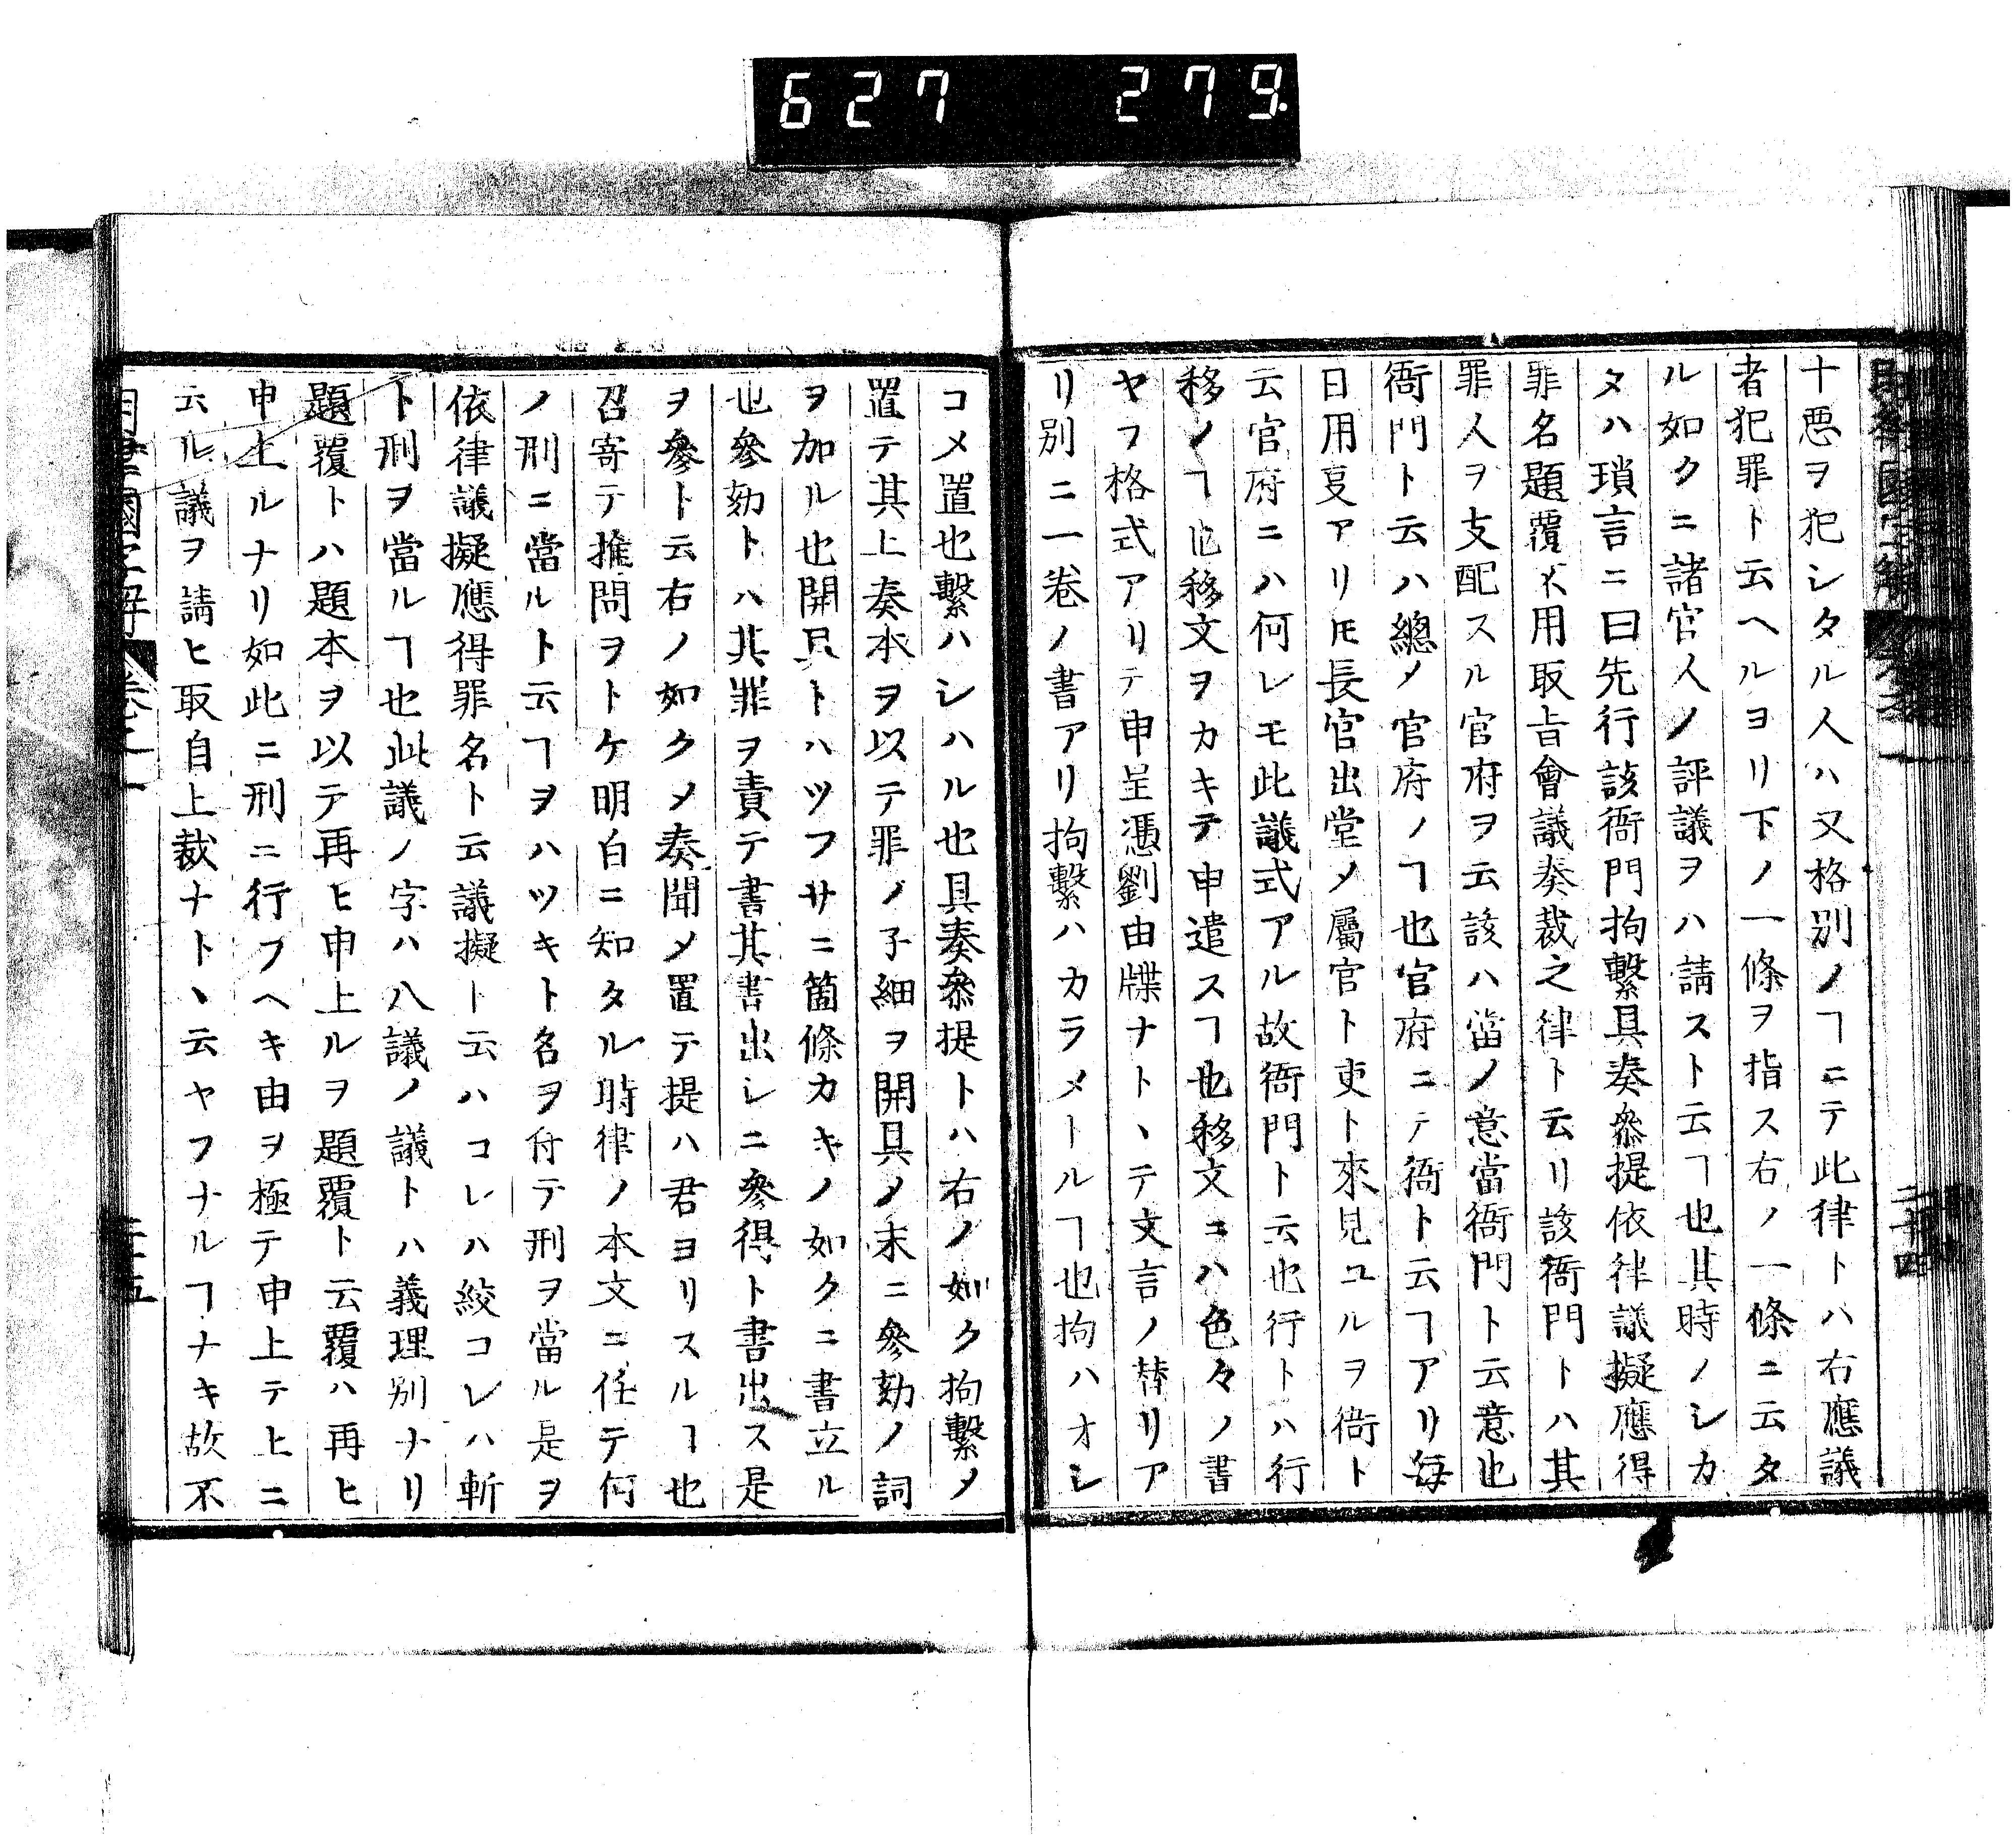 627 279
十悪ヲ犯シタル人ハ又格別ノヿニテ此律トハ右應議
者犯罪ト云ヘルヨリ下ノ一條ヲ指ス右ノ一條ニ云タ
ル如クニ諸官人ノ評議ヲハ請スト云ヿ也其時ノシカ
タハ瑣言ニ曰先行該衙門拘繫具奏叅提依律議擬應得
罪名題覆不用取旨會議奏裁之律ト云リ該衙門トハ其
罪人ヲ支配スル官府ヲ云該ハ當ノ意當衙門ト云意也
衙門ト云ハ總ノ官府ノヿ也官府ニテ衙ト云ヿアリ每
日用㕝アリ𪜈長官出堂〆屬官ト吏ト來見ユルヲ衙ト
云官府ニハ何レモ此議式アル故衙門ト云也行トハ行
移ノヿ也移文ヲカキテ申遣スヿ也移文ニハ色々ノ書
ヤフ格式アリテ申呈憑劄由牒ナトヽテ文言ノ替リア
リ別ニ一卷ノ書アリ拘繫ハカラメトルヿ也拘ハオシ
コメ置也繫ハシハル也具奏叅提トハ右ノ如ク拘繫〆
置テ其上奏本ヲ以テ罪ノ子細ヲ開具〆末ニ參劾ノ詞
ヲ加ル也開具トハツフサニ箇條カキノ如クニ書立ル
也參劾トハ其罪ヲ責テ書其書出シニ參得ト書出ス是
ヲ參ト云右ノ如ク〆奏聞〆置テ提ハ君ヨリスルヿ也
召寄テ推問ヲトケ明白ニ知タル時律ノ本文ニ任テ何
ノ刑ニ當ルト云ヿヲハツキト名ヲ付テ刑ヲ當ル是ヲ
依律議擬應得罪名ト云議擬ト云ハコレハ絞コレハ斬
ト刑ヲ當ルヿ也此議ノ字ハ八議ノ議トハ義理別ナリ
題覆トハ題本ヲ以テ再ヒ申上ルヲ題覆ト云覆ハ再ヒ
申上ルナリ如此ニ刑ニ行フヘキ由ヲ極テ申上テヒニ
云ル議ヲ請ヒ取自上裁ナトヽ云ヤフナルヿナキ故不